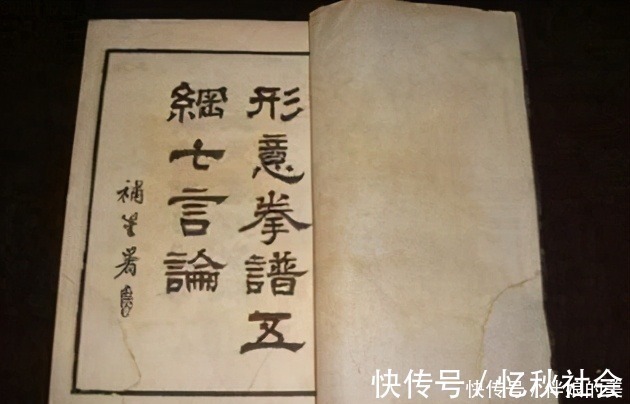 形意拳譜五
綱七言論
快传号／忆秋社会